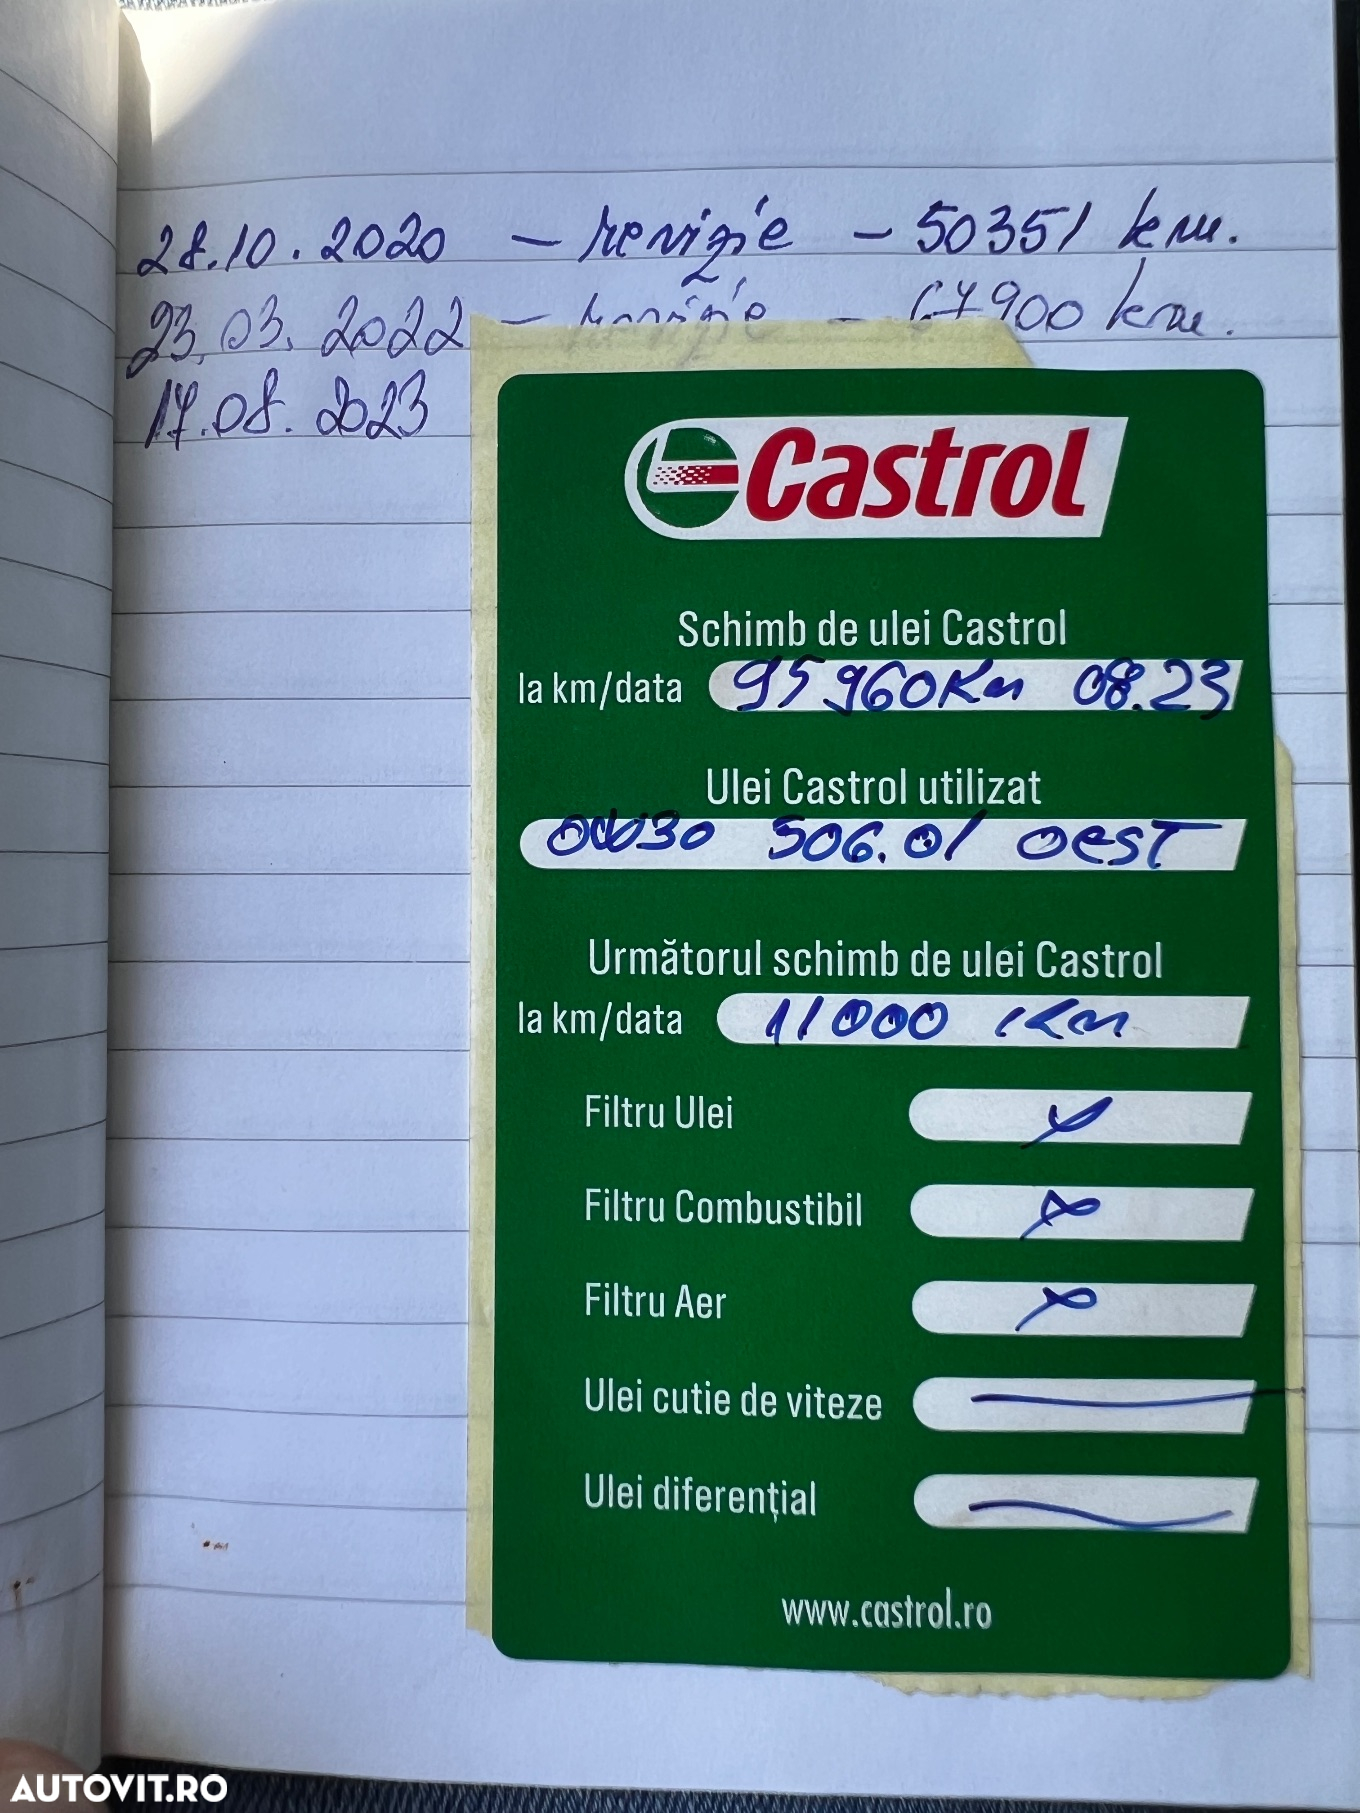 28.10.2020 – revizie – 50351 km.
23.03.2022 – revizie – 67900 km.
17.08.2023
Castrol
Schimb de ulei Castrol
la km/data 95960Km 08.23
Ulei Castrol utilizat
0W30 506.01 OEST
Următorul schimb de ulei Castrol
la km/data 11000 Km
Filtru Ulei
Filtru Combustibil
Filtru Aer
Ulei cutie de viteze
Ulei diferențial
www.castrol.ro
AUTOVIT.RO